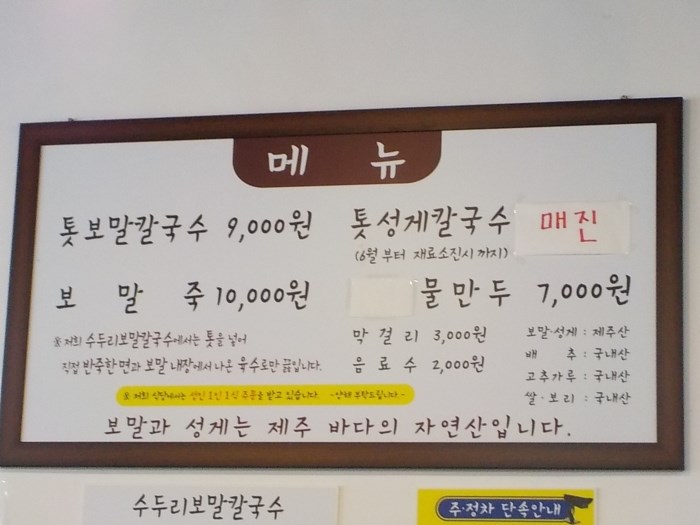 메 뉴
톳보말칼국수 9,000원
톳성게칼국수 매진
(6월 부터 재료소진시 까지)
보 말 죽 10,000원
물만두 7,000원
※ 저희 수두리보말칼국수에서는 톳을 넣어
직접 반죽한 면과 보말 내장에서 나온 육수로만 끓입니다.
막걸리 3,000원
음료수 2,000원
보말·성게 : 제주산
배 추 : 국내산
고추가루 : 국내산
쌀·보리 : 국내산
※ 저희 식당에서는 성인 1인 1식 주문을 받고 있습니다. - 양해 부탁드립니다 -
보말과 성게는 제주 바다의 자연산입니다.
수두리보말칼국수
주·정차 단속안내